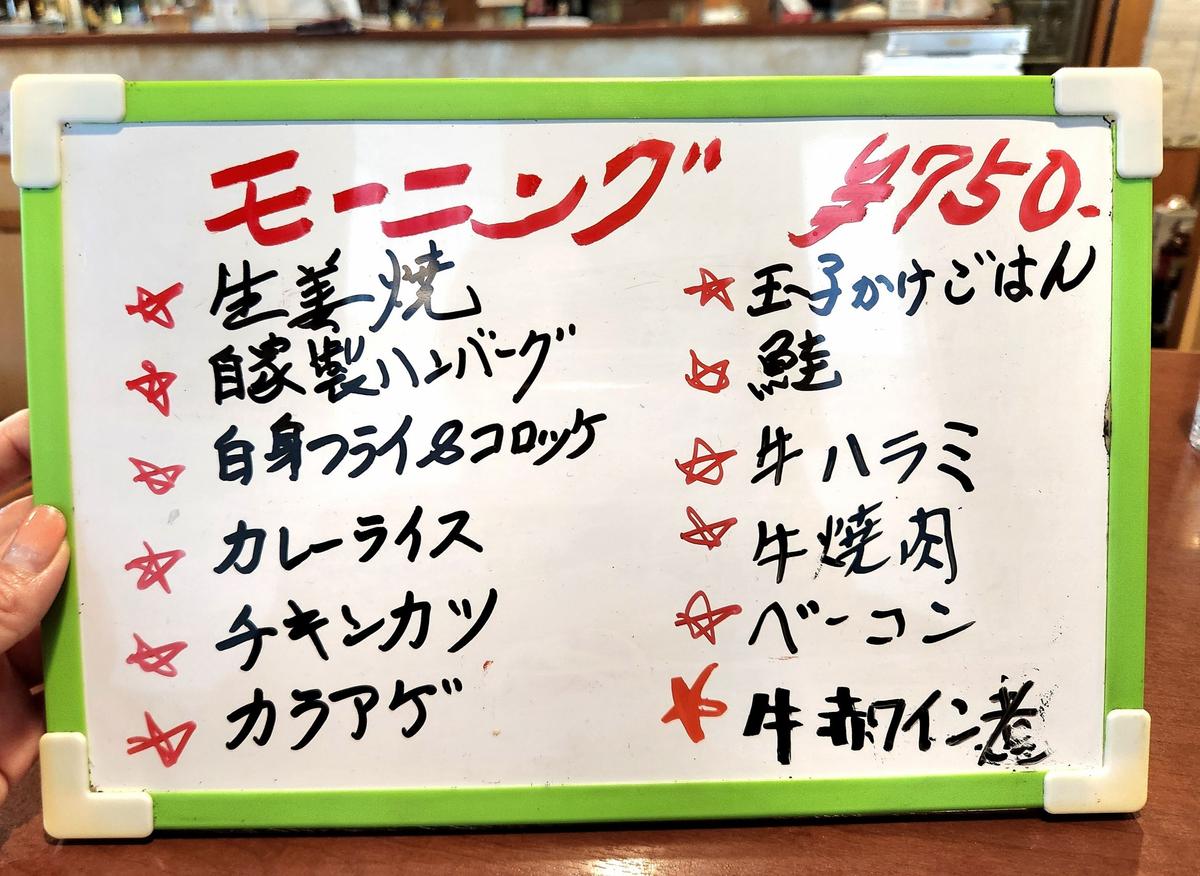 モーニング ¥750-
☆ 生姜焼
☆ 自家製ハンバーグ
☆ 白身フライ&コロッケ
☆ カレーライス
☆ チキンカツ
☆ カラアゲ
☆ 玉子かけごはん
☆ 鮭
☆ 牛ハラミ
☆ 牛焼肉
☆ ベーコン
★ 牛赤ワイン煮